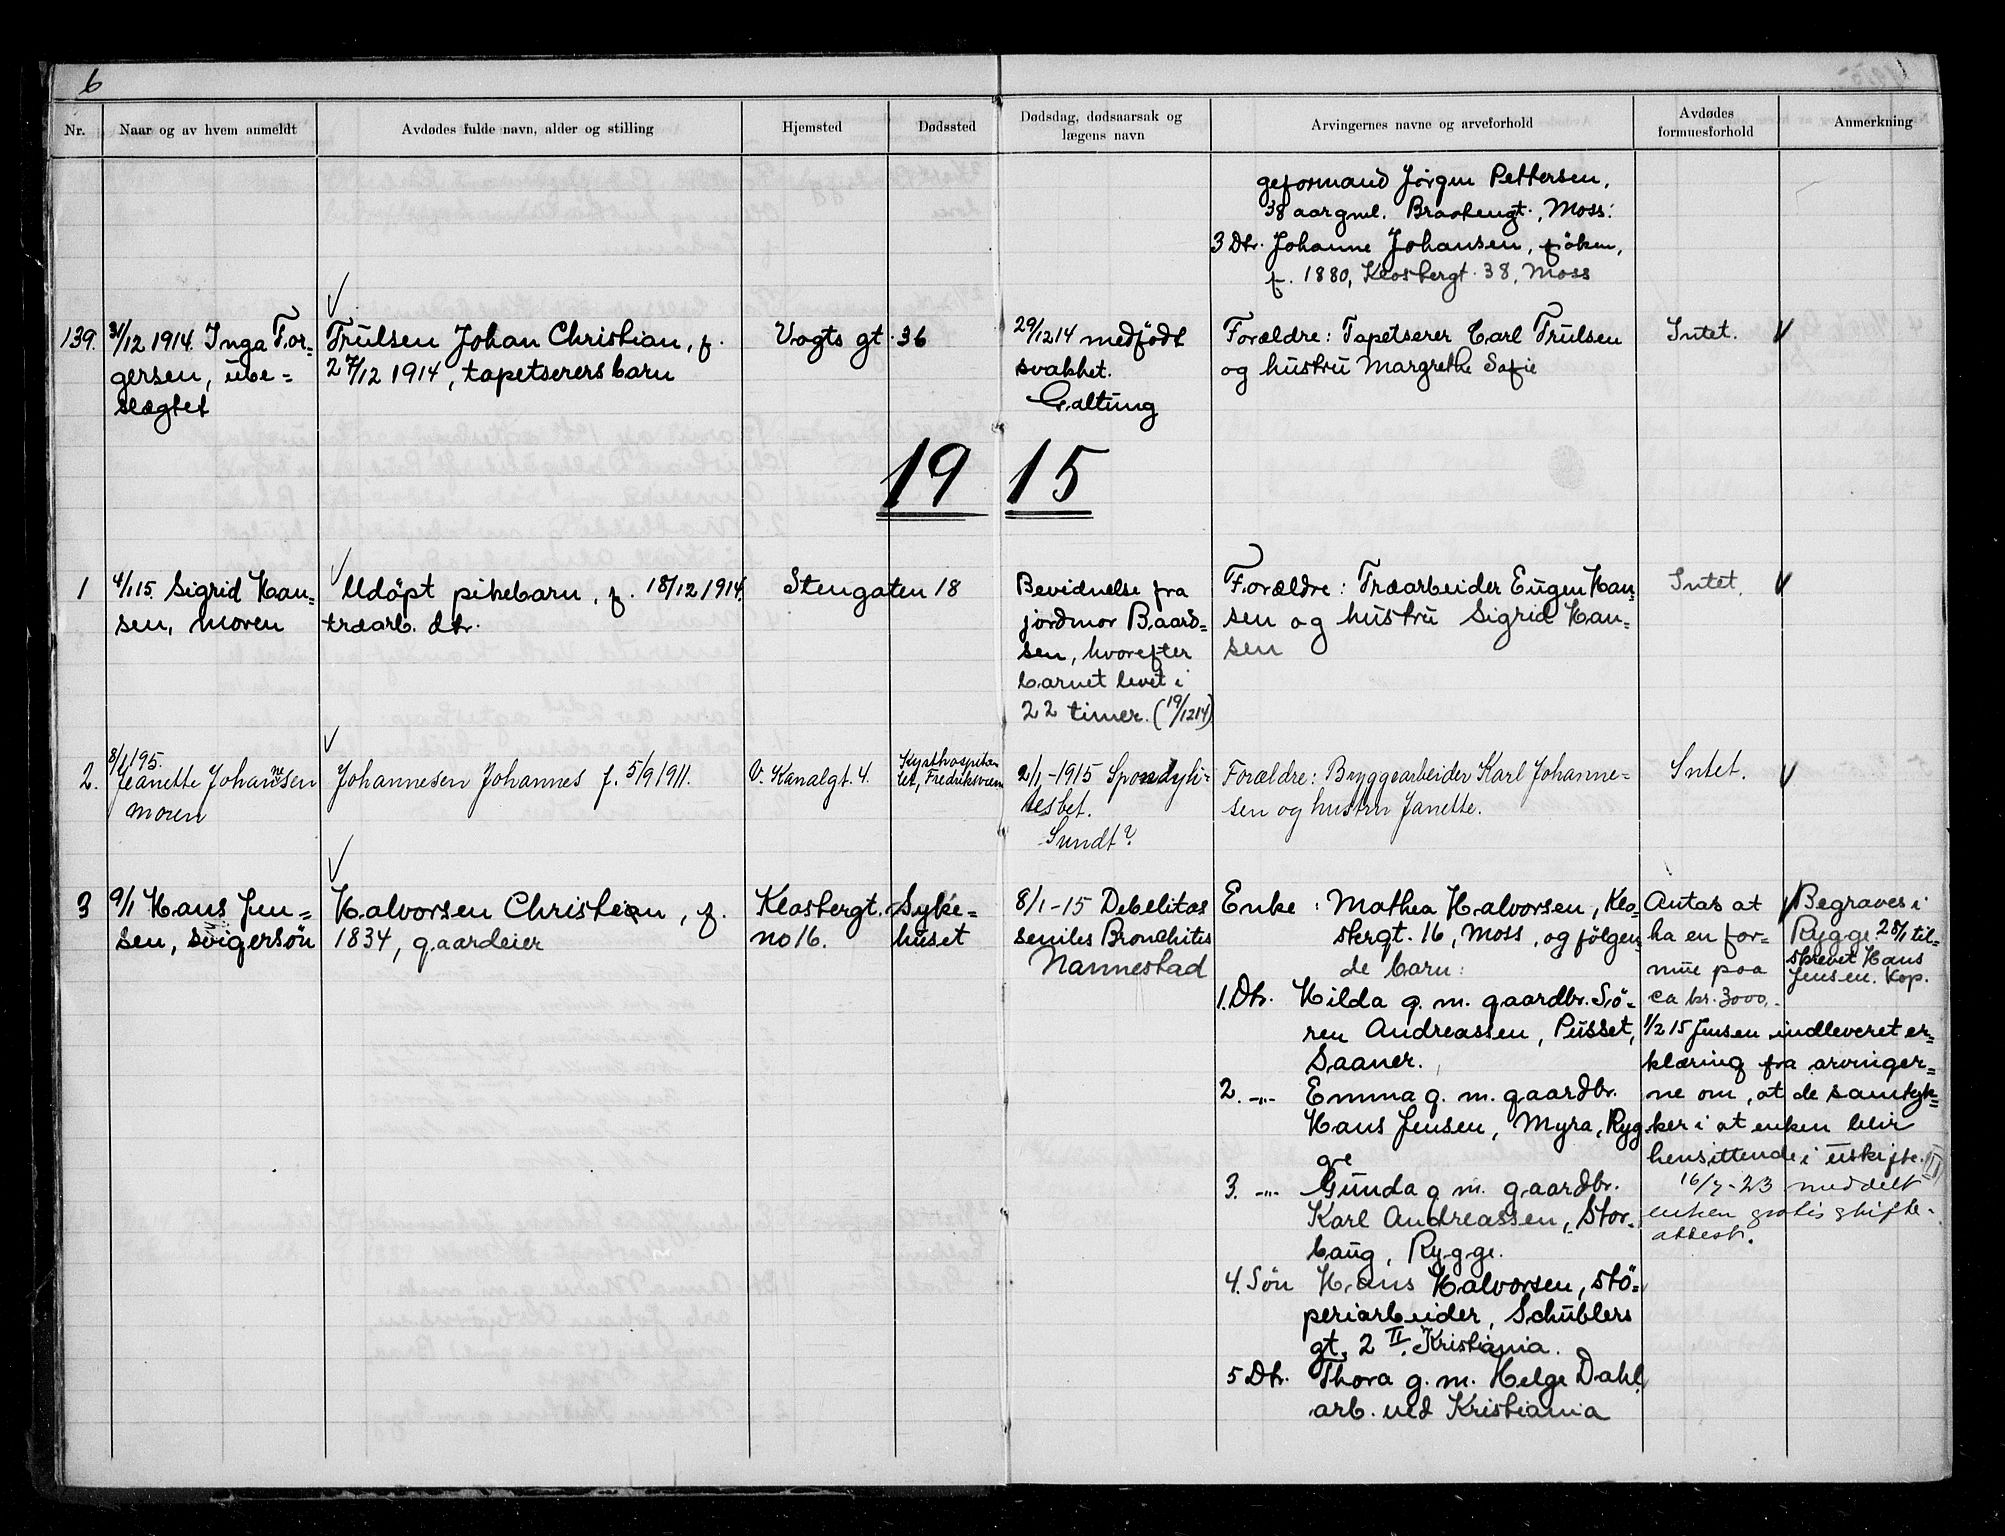 6
Nr.
Naar og av hvem anmeldt
Avdødes fulde navn, alder og stilling
Hjemsted
Dødssted
Dødsdag, dødsaarsak og
lægens navn
Arvingernes navne og arveforhold
Avdødes
formuesforhold
Anmerkning
geformand Jørgen Pettersen,
38 aar gml. Braatengt., Moss.
3 Dtr. Johanne Johansen, frøken,
f. 1880, Klosbergt. 38, Moss
139.
31/12 1914. Inga Tor-
gersen, ube-
slægtet
Trulsen Johan Christian, f.
27/12 1914, tapetserersbarn
Vogts gt. 36
29/12 14 medfødt
svakhet.
Galtung
Forældre: Tapetserer Carl Trulsen
og hustru Margrethe Sofie
Intet.
1915
1
4/1 15. Sigrid Han-
sen, moren
Udøpt pikebarn, f. 18/12 1914.
træarb. dtr.
Stengaten 18
Bevidnelse fra
jordmor Baard-
sen, hvorefter
barnet levet i
22 timer. (19/12 14)
Forældre: Træarbeider Eugen Han-
sen og hustru Sigrid Han-
sen
Intet.
2.
8/1 195.
Jeanette Johannesen
moren
Johannesen Johannes f. 5/9 1911.
V. Kanalgt. 4.
Kysthospita
let, Fredriksværn
2/1-1915 Spondyli-
tesbet.
Sundt?
Forældre: Bryggearbeider Karl Johanne-
sen og hustru Janette.
Intet.
3
9/1 Hans Jen-
sen, svigersøn
Halvorsen Christian, f.
1834, gaardeier
Klosbergt.
no 16.
Syke-
huset
8/1-15 Debelitas
seniles Bronchites
Nannestad
Enke: Mathea Halvorsen, Klo-
stergt. 16, Moss, og følgen
de barn:
1. Dtr. Hilda g. m. gaardbr. Sø-
ren Andreassen, Pusset,
Saaner.
2. -"- Emma g. m. gaardbr.
Hans Jensen, Myra, Ryg
ge
3. -"- Gunda g m. gaardbr.
Karl Andreassen, Stor-
baug, Rygge.
4. Søn Hans Halvorsen, stø-
periarbeider, Schüblers
gt. 2 II. Kristiania.
5 Dtr. Thora g. m. Helge Dahl,
arb. ved Kristiania
Antas at
ha en for-
mue paa
ca kr. 3000,-
Begraves i
Rygge. 28/1 til-
skrevet Hans
Jensen. Kop.
1/2 15 Jensen indleveret er-
klæring fra arvinger-
ne om, at de samtyk-
ker i at enken blir
hensittende i uskifte.
16/7-23 meddelt
enken gratis skifte-
attest.